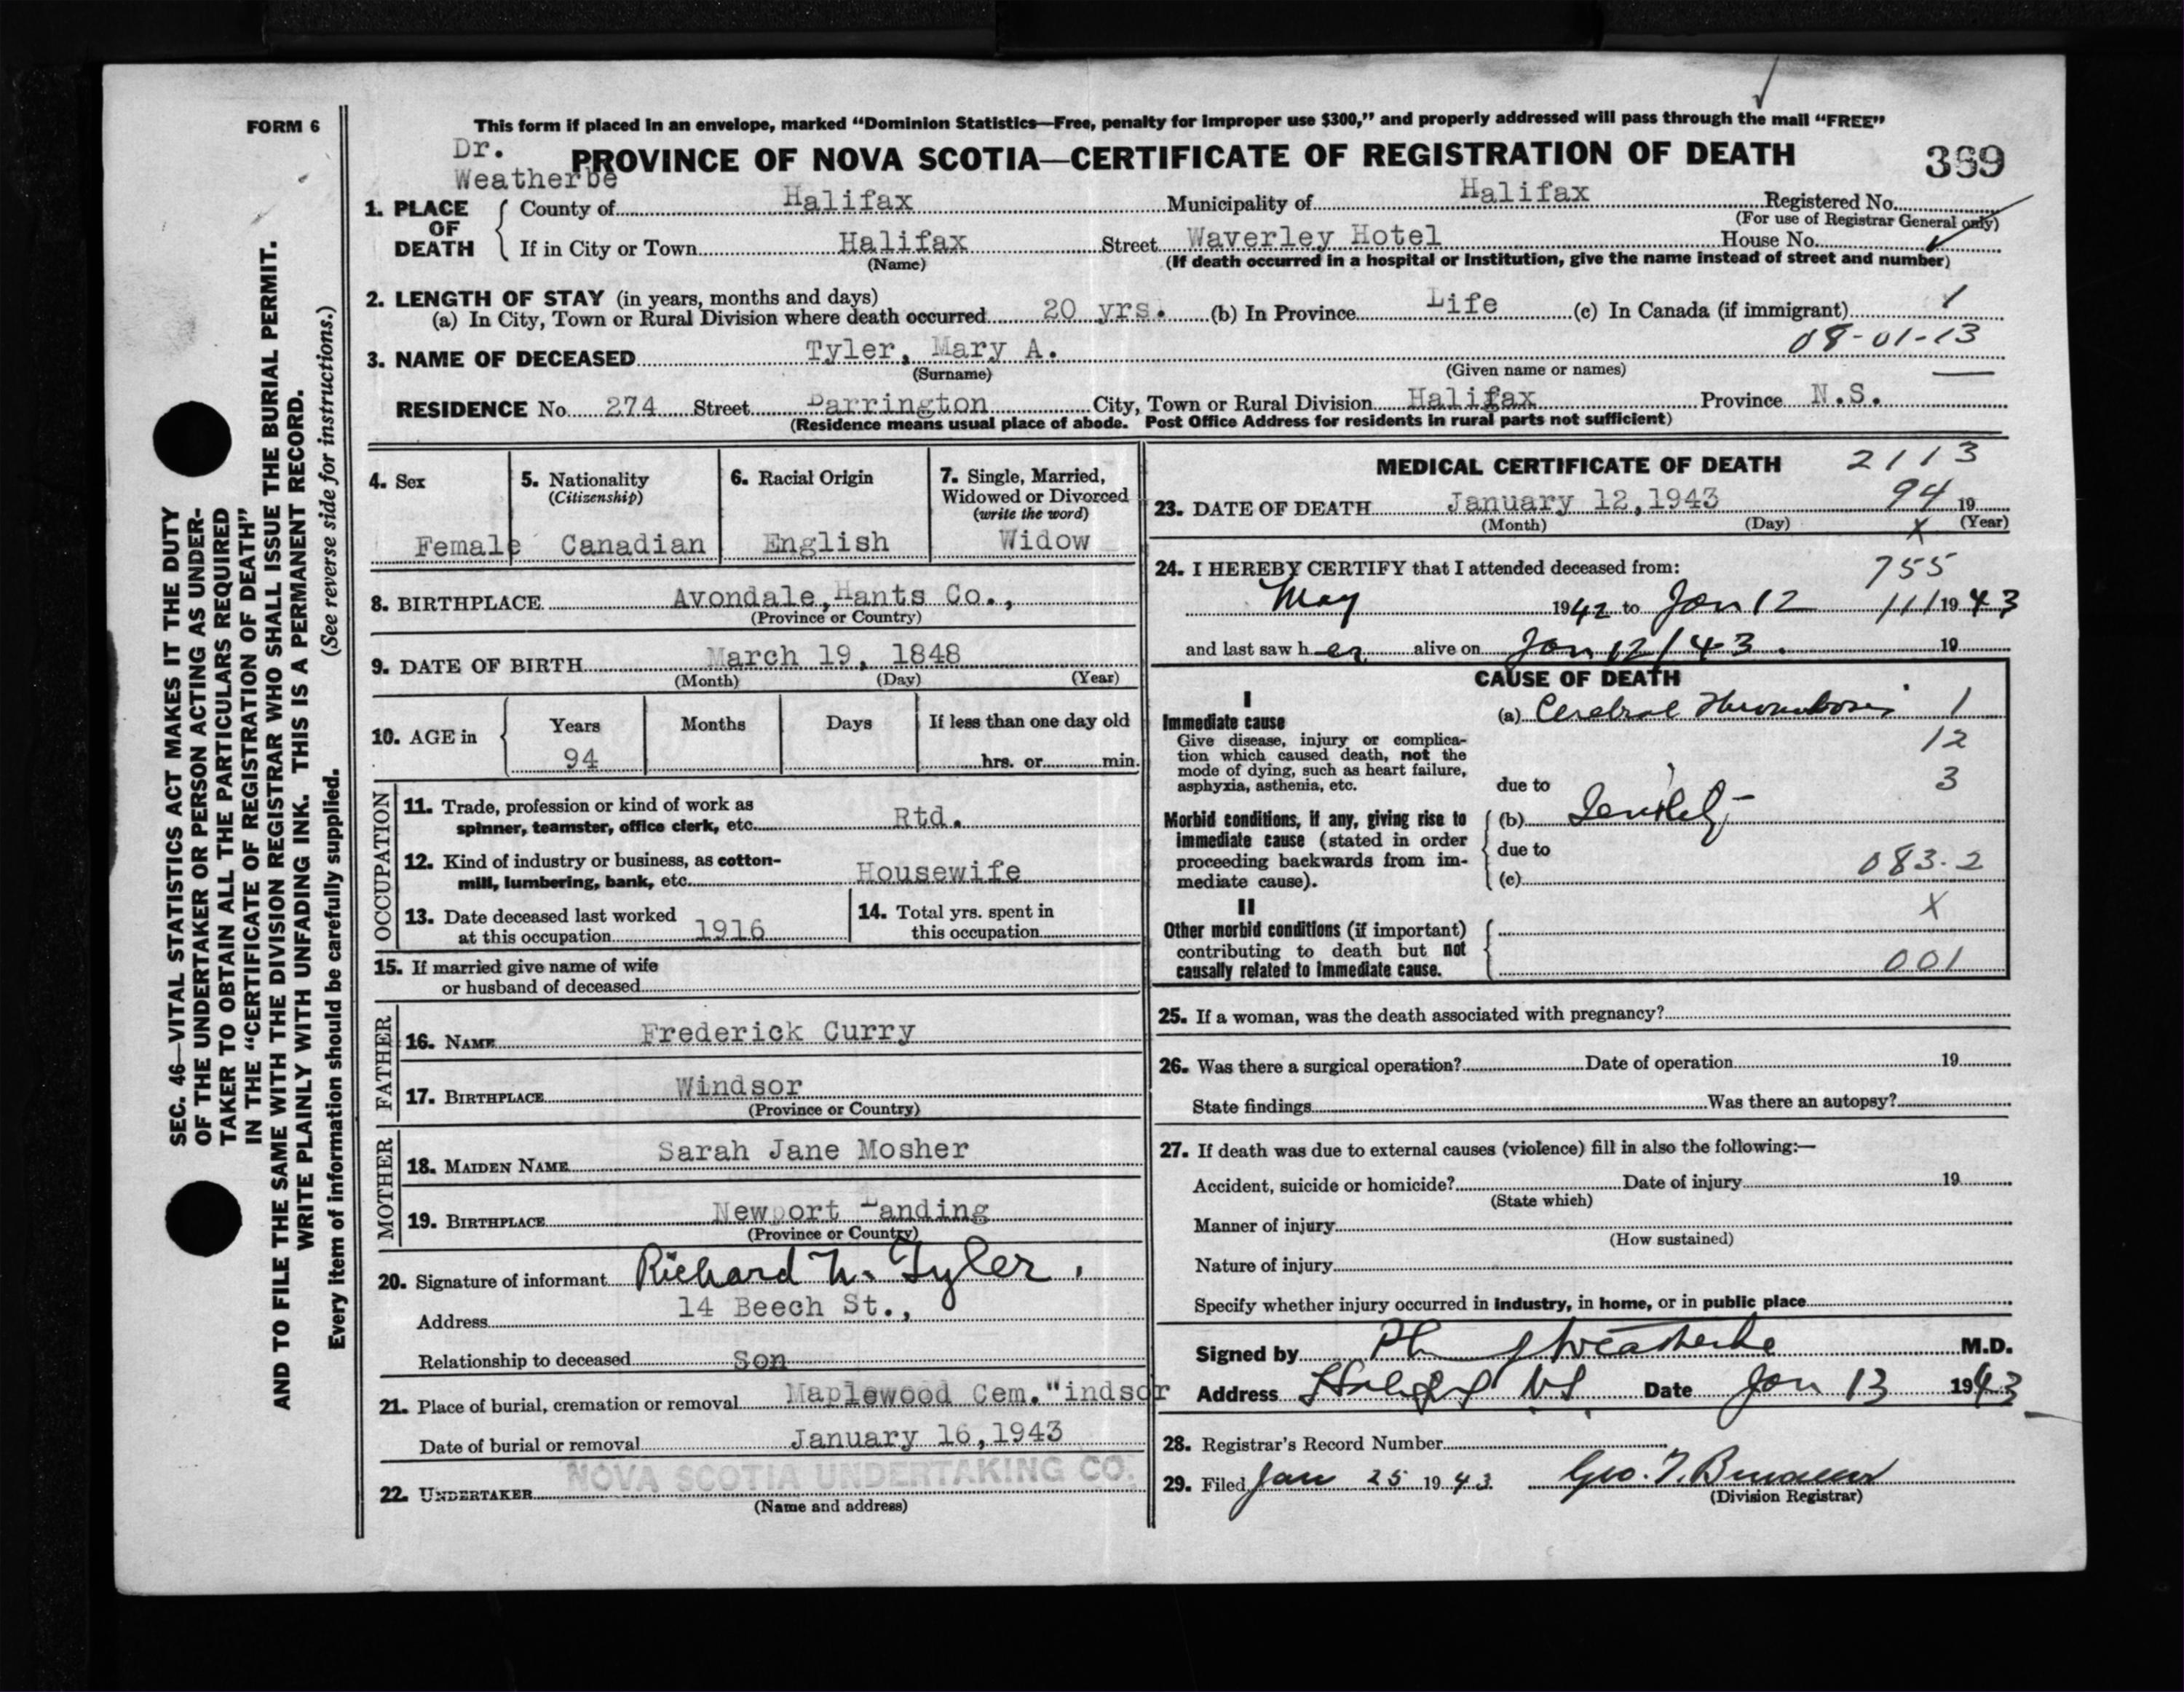 FORM 6
This form if placed in an envelope, marked “Dominion Statistics—Free, penalty for improper use $300,” and properly addressed will pass through the mail “FREE”
Dr.
Weatherbe
PROVINCE OF NOVA SCOTIA—CERTIFICATE OF REGISTRATION OF DEATH 369
1. PLACE OF DEATH
County of Halifax Municipality of Halifax Registered No.
(For use of Registrar General only)
If in City or Town Halifax Street Waverley Hotel House No.
(Name) (If death occurred in a hospital or institution, give the name instead of street and number)
2. LENGTH OF STAY (in years, months and days)
(a) In City, Town or Rural Division where death occurred 20 yrs. (b) In Province Life (c) In Canada (if immigrant) 1
08-01-13
3. NAME OF DECEASED Tyler, Mary A.
(Surname) (Given name or names)
RESIDENCE No. 274 Street Barrington City, Town or Rural Division Halifax Province N.S.
(Residence means usual place of abode. Post Office Address for residents in rural parts not sufficient)
4. Sex
Female
5. Nationality
(Citizenship)
Canadian
6. Racial Origin
English
7. Single, Married,
Widowed or Divorced
(write the word)
Widow
8. BIRTHPLACE Avondale, Hants Co.,
(Province or Country)
9. DATE OF BIRTH March 19, 1848
(Month) (Day) (Year)
10. AGE in Years Months Days If less than one day old
94 hrs. or min.
OCCUPATION
11. Trade, profession or kind of work as
spinner, teamster, office clerk, etc. Rtd.
12. Kind of industry or business, as cotton-
mill, lumbering, bank, etc. Housewife
13. Date deceased last worked
at this occupation 1916
14. Total yrs. spent in
this occupation
15. If married give name of wife
or husband of deceased
FATHER
16. NAME Frederick Curry
17. BIRTHPLACE Windsor
(Province or Country)
MOTHER
18. MAIDEN NAME Sarah Jane Mosher
19. BIRTHPLACE Newport Landing
(Province or Country)
20. Signature of informant Richard W. Tyler.
Address 14 Beech St.,
Relationship to deceased Son
21. Place of burial, cremation or removal Maplewood Cem. "indsor
Date of burial or removal January 16,1943
22. UNDERTAKER NOVA SCOTIA UNDERTAKING CO.
(Name and address)
MEDICAL CERTIFICATE OF DEATH 2113
23. DATE OF DEATH January 12,1943 94 19
(Month) (Day) X (Year)
24. I HEREBY CERTIFY that I attended deceased from: 755
May 1942 to Jan 12 111 1943
and last saw her alive on Jan 12/43. 19
CAUSE OF DEATH
I
Immediate cause
Give disease, injury or complica-
tion which caused death, not the
mode of dying, such as heart failure,
asphyxia, asthenia, etc.
(a) Cerebral Thrombosis 1
12
due to 3
Morbid conditions, if any, giving rise to
immediate cause (stated in order
proceeding backwards from im-
mediate cause).
(b) Senility
due to
(c) 083-2
II
X
Other morbid conditions (if important)
contributing to death but not
causally related to immediate cause.
001
25. If a woman, was the death associated with pregnancy?
26. Was there a surgical operation? Date of operation 19
State findings Was there an autopsy?
27. If death was due to external causes (violence) fill in also the following:—
Accident, suicide or homicide? Date of injury 19
(State which)
Manner of injury
(How sustained)
Nature of injury
Specify whether injury occurred in industry, in home, or in public place
Signed by Weatherbe M.D.
Address Halifax NS Date Jan 13 1943
28. Registrar's Record Number
29. Filed Jan 25 1943 Geo.
(Division Registrar)
SEC. 46—VITAL STATISTICS ACT MAKES IT THE DUTY
OF THE UNDERTAKER OR PERSON ACTING AS UNDER-
TAKER TO OBTAIN ALL THE PARTICULARS REQUIRED
IN THE “CERTIFICATE OF REGISTRATION OF DEATH”
AND TO FILE THE SAME WITH THE DIVISION REGISTRAR WHO SHALL ISSUE THE BURIAL PERMIT.
WRITE PLAINLY WITH UNFADING INK. THIS IS A PERMANENT RECORD.
Every item of information should be carefully supplied. (See reverse side for instructions.)